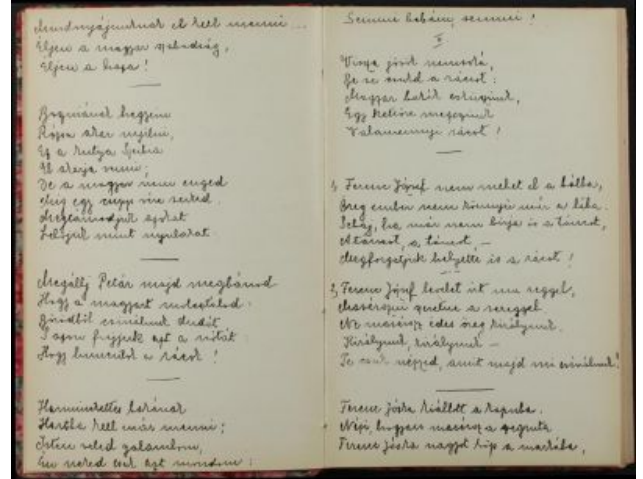 Mindnyájunknak el kell menni ...
Éljen a magyar szabadság,
Éljen a haza!
Boszniának hegyein
Rózsa akar nyilni,
Ez a kutya Szerbia
El akarja venni;
De a magyar nem enged
Míg egy csepp vére
Megtámadjuk azokat
Lelőjük mint nyulakat
Megállj Péter majd megbánod
Hogy a magyart molesztálod.
Bőrödből csinálunk dudát
S azon fujjuk azt a nótát
Hogy huncut a rácz!
Harminckettes bakának
Harcba kell már menni;
Isten veled galambom,
Én neked csak azt mondom:
Semmi babám, semmi!
II.
Vissza jövök nemsoká,
De se
Magyar bakák esküszünk,
Egy kettőre megeszünk
Valamennyi rácot!
1, Ferenc József nem mehet el a bálba,
Öreg ember nem könnyü már a lába.
Sebaj, ha már nem birja is a táncot,
A táncot, a táncot, –
Megforgatjuk helyette is a rácot!
2, Ferenc József levelet irt ma reggel,
masérozni a sereggel
Ne édes öreg királyunk.
Királyunk, királyunk –
Te csak nézzed, amit majd mi csinálunk!
Ferenc Jóska kiállott a kapuba.
Nézi, hogyan a regruta
Ferenc Jóska nagyot a markába,